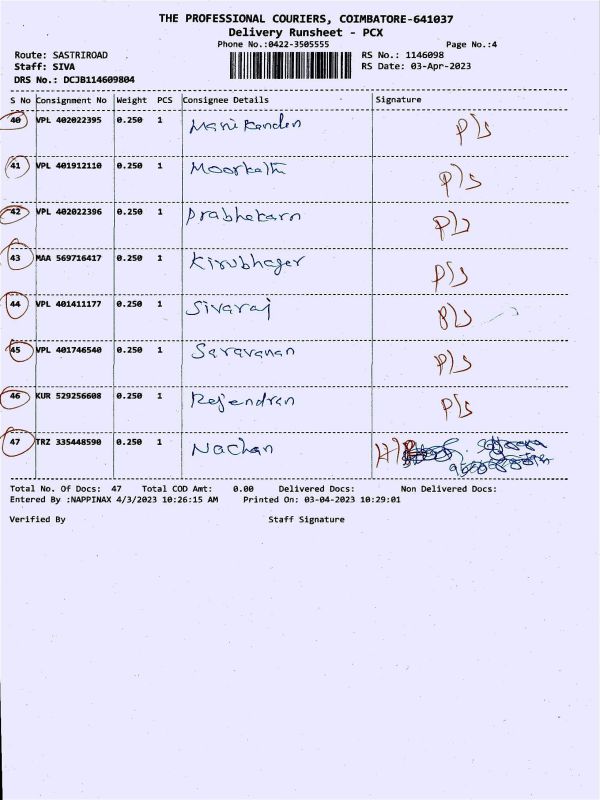 THE PROFESSIONAL COURIERS, COIMBATORE-641037
Delivery Runsheet - PCX
Phone No.:0422-3505555 Page No.:4
Route: SASTRIROAD RS No.: 1146098
Staff: SIVA RS Date: 03-Apr-2023
DRS No.: DCJB114609804
S No Consignment No Weight PCS Consignee Details Signature
40 VPL 402022395 0.250 1 Manikandan P/s
41 VPL 401912110 0.250 1 P)s
42 VPL 402022396 0.250 1 Prabhakarn P/s
43 MAA 569716417 0.250 1 Kirubhager P/s
44 VPL 401411177 0.250 1 Sivaraj P/s
45 VPL 401746540 0.250 1 Saravanan P/s
46 KUR 529256608 0.250 1 Rejendran P/s
47 TRZ 335448590 0.250 1 Nachan
Total No. Of Docs: 47 Total COD Amt: 0.00 Delivered Docs: Non Delivered Docs:
Entered By :NAPPINAX 4/3/2023 10:26:15 AM Printed On: 03-04-2023 10:29:01
Verified By Staff Signature